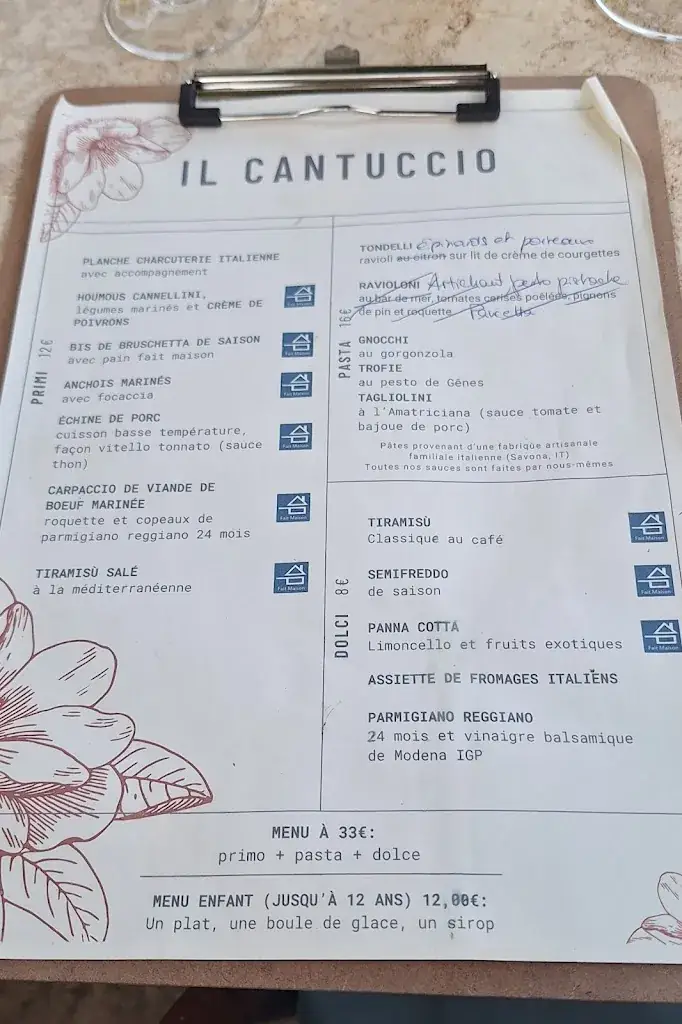 IL CANTUCCIO
PRIMI 12€
PLANCHE CHARCUTERIE ITALIENNE
avec accompagnement
HOUMOUS CANNELLINI,
légumes marinés et CRÈME DE
POIVRONS
Fait Maison
BIS DE BRUSCHETTA DE SAISON
avec pain fait maison
Fait Maison
ANCHOIS MARINÉS
avec focaccia
Fait Maison
ÉCHINE DE PORC
cuisson basse température,
façon vitello tonnato (sauce
thon)
Fait Maison
CARPACCIO DE VIANDE DE
BOEUF MARINÉE
roquette et copeaux de
parmigiano reggiano 24 mois
Fait Maison
TIRAMISÙ SALÉ
à la méditerranéenne
Fait Maison
PASTA 16€
TONDELLI Épinards et poireaux
ravioli au citron sur lit de crème de courgettes
RAVIOLONI Artichaut pesto pistache
au bar de mer, tomates cerises poêlées, pignons
de pin et roquette
GNOCCHI
au gorgonzola
TROFIE
au pesto de Gênes
TAGLIOLINI
à l'Amatriciana (sauce tomate et
bajoue de porc)
Pâtes provenant d'une fabrique artisanale
familiale italienne (Savona, IT)
Toutes nos sauces sont faites par nous-mêmes
DOLCI 8€
TIRAMISÙ
Classique au café
Fait Maison
SEMIFREDDO
de saison
Fait Maison
PANNA COTTA
Limoncello et fruits exotiques
Fait Maison
ASSIETTE DE FROMAGES ITALIENS
PARMIGIANO REGGIANO
24 mois et vinaigre balsamique
de Modena IGP
MENU À 33€:
primo + pasta + dolce
MENU ENFANT (JUSQU'À 12 ANS) 12,00€:
Un plat, une boule de glace, un sirop